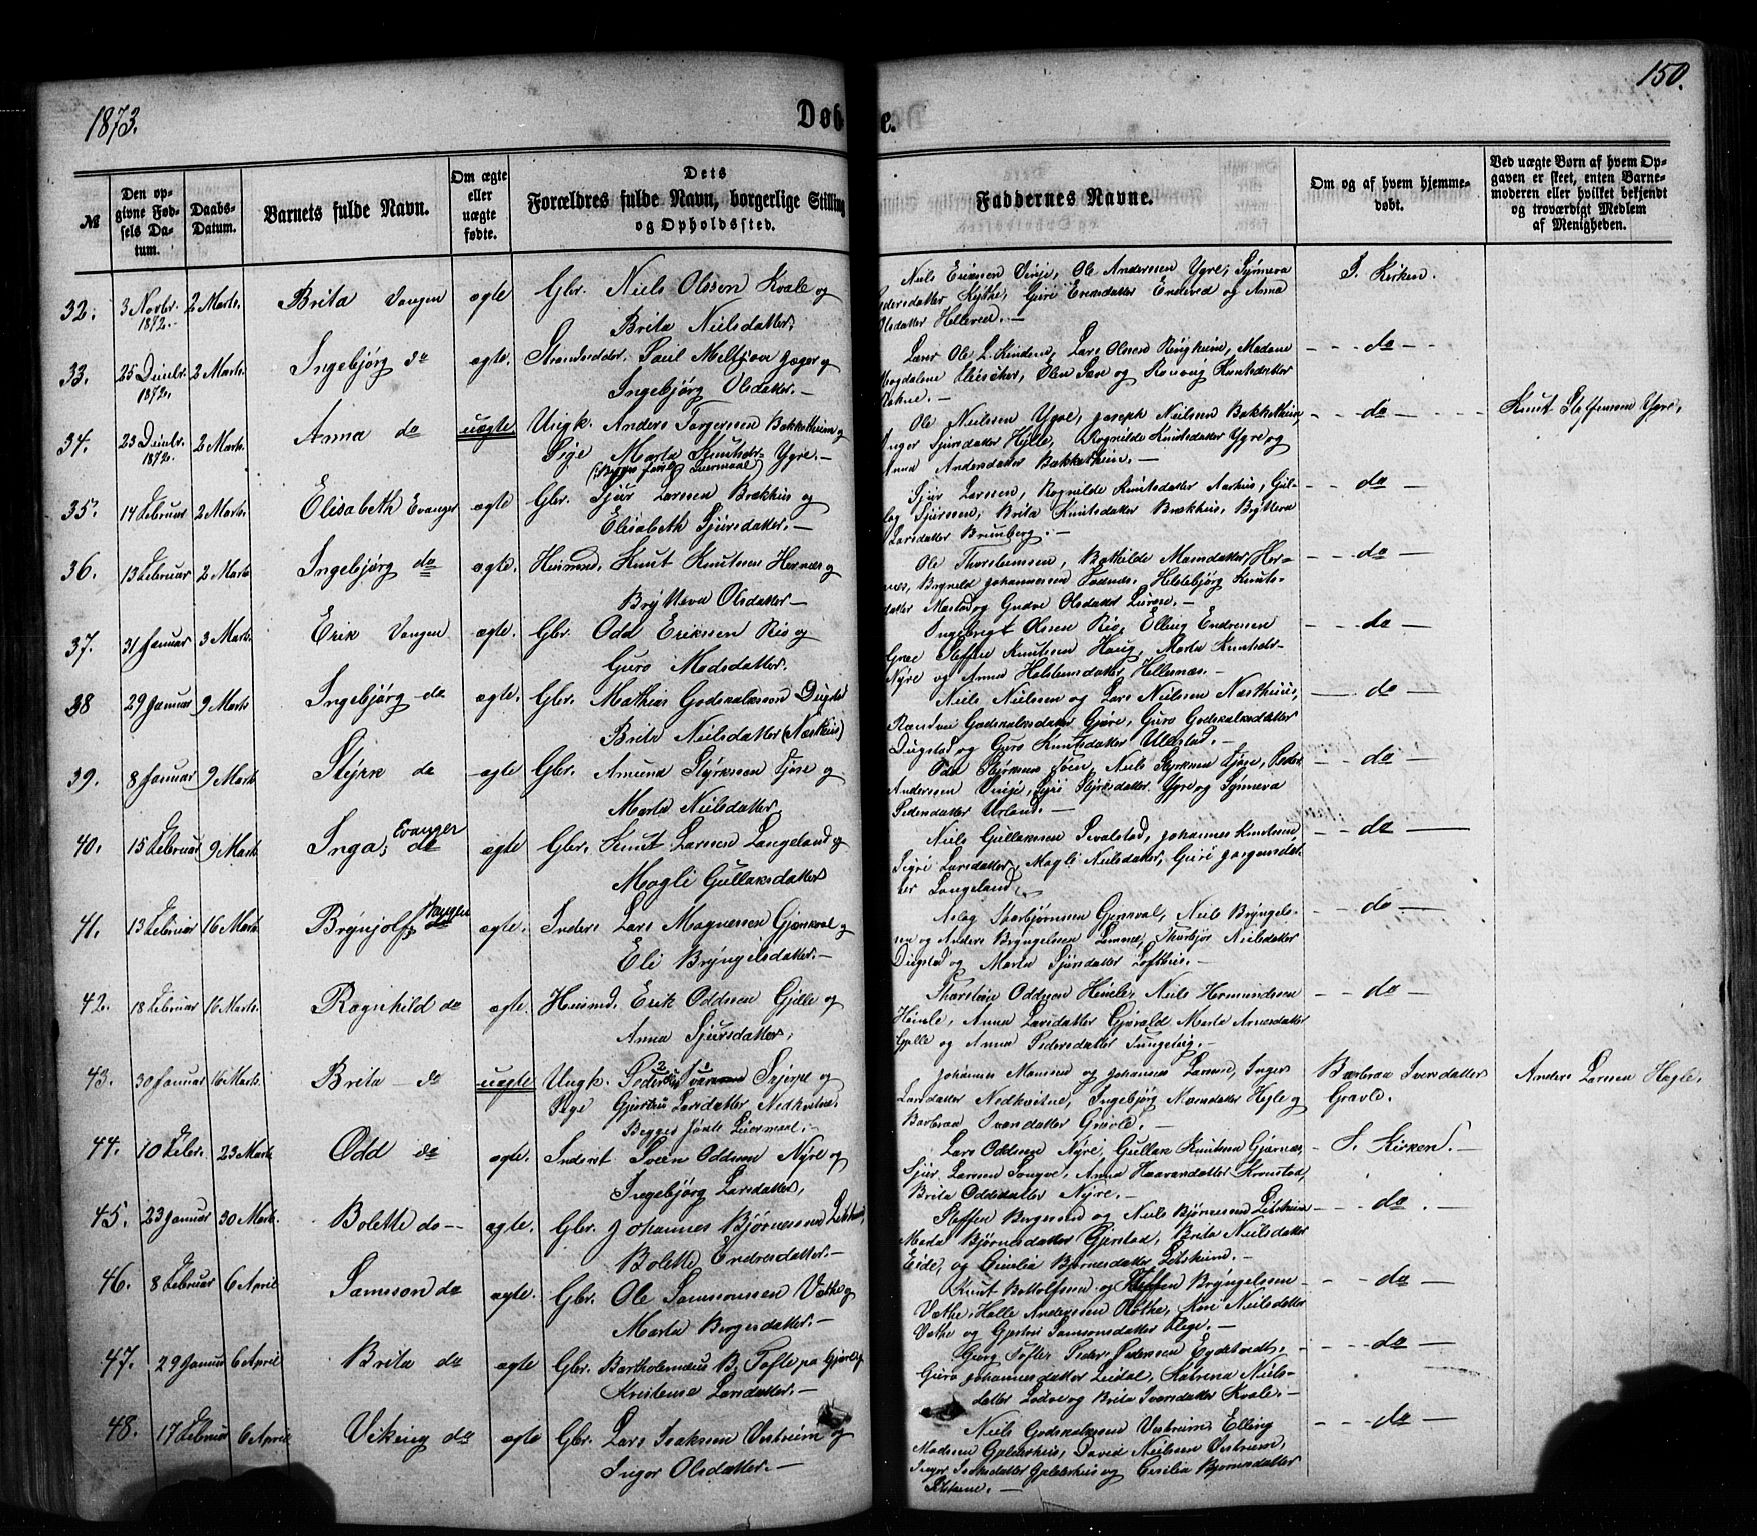 1873.
Døb
e.
150.
№
Den op-
givne Fød-
sels Da-
tum.
Daabs-
Datum.
Barnets fulde Navn.
Om ægte
eller
uægte
fødte.
Dets
Forældres fulde Navn, borgerlige Stilling
og Opholdssted.
Faddernes Navne.
Om og af hvem hjemme-
døbt.
Ved uægte Børn af hvem Op-
gaven er skeet, enten Barne-
moderen eller hvilket bekjendt
og troværdigt Medlem
af Menigheden.
32. 3 Novbr. 1872. 2 Marts. Brita Vangen ægte Gbr. Niels Olsson Kvale og
Brita Nielsdatter.
Niels Eriksen Vinje, Ole Andersen Ygre, Synneva
Pedersdatter Kythe, Guri Eriksdatter Endeved og Anna
Olsdatter Helleved. —
I. Kirken.
33. 25 Decbr. 1872. 2 Marts. Ingebjørg do ægte. Strandsidder Paul Meltzion Jæger og
Ingebjørg Olsdatter. —
Lærer Ole L. Kindem, Lars Olsen Ringheim, Madame
Magdalene
— do —
34. 23 Decbr. 1872. 2 Marts. Anna do uægte Ungk. Anders Torgersen Bakkethun og
Pige Marta Knutsdr Ygre. —
(Begges første Leiermaal)
Ole Nielsen Ygre, Joseph Nielsen Bakkethun,
Inger Sjursdatter Hylle, Rognilde Knutsdatter Ygre og
Anna Andersdatter Bakkethun. —
— do —
Knut Steffensen Ygre,
35. 14 Februar 2 Marts Elisabeth Evanger ægte Gbr. Sjur Larssen Brækhus og
Elisabeth Sjursdatter. —
Sjur Larssen, Rognilde Knutsdatter Aarhus, Gul-
lag Sjurssen, Brita Knutsdatter Brækhus, Bryttera
Larsdatter Brunberg. —
— do —
36. 13 Februar 2 Marts Ingebjørg do ægte. Husmd. Knut Knutsen Hernæs og
Brytteva Olsdatter —
Ole Thorsteinsen, Bothilde Monsdatter Her-
næs, Brynild Johannessen Fadnes, Helsebjørg Knuts-
datter Mestad og Gudve Olsdatter —
— do —
37. 31 Januar 3 Marts. Erik Vangen ægte. Gbr. Odd Eriksen Rio og
Guro Madsdatter.
Ingebrigt Olsen Rio, Elling Endresen
Græe Steffen Knutsen Haug, Marta Knutsdr
Nyre og Anna Holstensdatter, Hellernæs. —
— do —
38 29 Januar 9 Marts Ingebjørg do ægte. Gbr. Mathias Godskalksson Dugstad
Brita Nielsdatter (Næsthus)
Niels Nielsen og Lars Nielsen Næsthuus,
Randvei Godskalksdatter Gjøre, Guro Godskalksdatter
Dugstad og Guro Knutsdatter Ullestad. —
— do —
39. 8 Januar 9 Marts Styrk do ægte Gbr. Amund Styrksen Tjose og
Marta Nielsdatter.
Odd Styrksen Tøen, Niels Styrksen Tjose, Peder
Andersen Vinje, Syri Styrksdatter Ygre og Synneva
Pedersdatter Urland. —
— do —
40. 15 Februar 9 Marts Inga, Evanger do ægte Gbr. Knut Larsen Langeland og
Magli Gullaksdatter
Niels Gullaksen Sevalstad, Johannes Knudsen,
Sigri Larsdatter, Magli Nielsdatter, Guri Jorgensdat-
ter Langeland,
— do —
41. 13 Februar 16 Marts Brynjolf, Vangen do ægte. Inders Lars Magnesen Gjernsval og
Eli Bryngelsdatter. —
Aslag Thorbjørnsen Gjernsval, Niels Bryngels-
sen og Anders Bryngelsen Lemme, Thorbjør Nielsdatter
Dugstad og Marta Sjursdatter Lofthus. —
— do —
42. 18 Februar 16 Marts. Ragnhild do ægte. Husmd. Erik Oddsen Gjelle og
Anna Sjursdatter.
Thorstein Oddson Himle, Niels Hermundsen
Himle, Anna Larsdatter Gjerald, Marta Arnesdatter
Gjelle og Anna Pedersdatter Tungeteig. —
— do —
43. 30 Januar 16 Marts. Brita — do uægte Ungk. Peder Iversen Skjerpe og
Pige Gjertrud Larsdatter Nedkvitne.
Begges første Leiermaal. —
Johannes Monsen og Johannes Larsen, Inger
Larsdatter Nedkvitne, Ingebjørg Monsdatter Hegle og
Barbraa Iversdatter Gravle. —
Barbraa Iversdatter
Gravle.
Anders Larsen Hegle,
44. 10 Febr. 23 Marts Odd do ægte. Inderst Svein Oddsen Nyre og
Ingebjørg Larsdatter,
Lars Oddsen Nyre, Gullak Knutsen Gjernæs,
Sjur Larsen Songve, Anna Haavarsdatter Hernstad,
Brita Oddsdatter Nyre. —
I. Kirken. —
45. 23 Januar 30 Marts. Bolette do — ægte. Gbr. Johannes Bjørnessen Lidsheim,
Bolette Endresdatter. —
Steffen Bergessen og Niels Bjørnesen Lidsheim
Marta Bjørnesdatter Gjerstad, Brita Nielsdatter
Eide, og Cecilia Bjørnesdatter Lidsheim. —
— do —
46. 8 Februar 6 April Samson do ægte. Gbr. Ole Samsonssen Væthe og
Marta Bergesdatter. —
Knut Botolfsen og Steffen Bryngelssen
Væthe, Helle Anderssen Røthe, Kari Nielsdatter
Væthe og Gjertru Samsonsdatter Flage. —
— do —
47. 29 Januar 6 April Brita do ægte Gbr. Bartholomæus B. Tofte pa Gjøre og
Kristense Larsdatter. —
Georg Tofte, Peder Pedersen Eggstvedt,
Guro Johannesdatter Leidal, Katrina Niels-
datter Lødve og Brita Iversdatter Kvale. —
— do —
48. 17 Februar 6 April Viking do ægte Gbr. Lars Isaksen Vestreim og
Inger Olsdatter. —
Niels Godskalksen Vestreim, Elling
Madsen Gjelderhus, David Nielssen Vestreim,
Inger Isaksdatter Gjelderhus og Cecilia Bjørnesdatter
Lidsheim. —
— do —